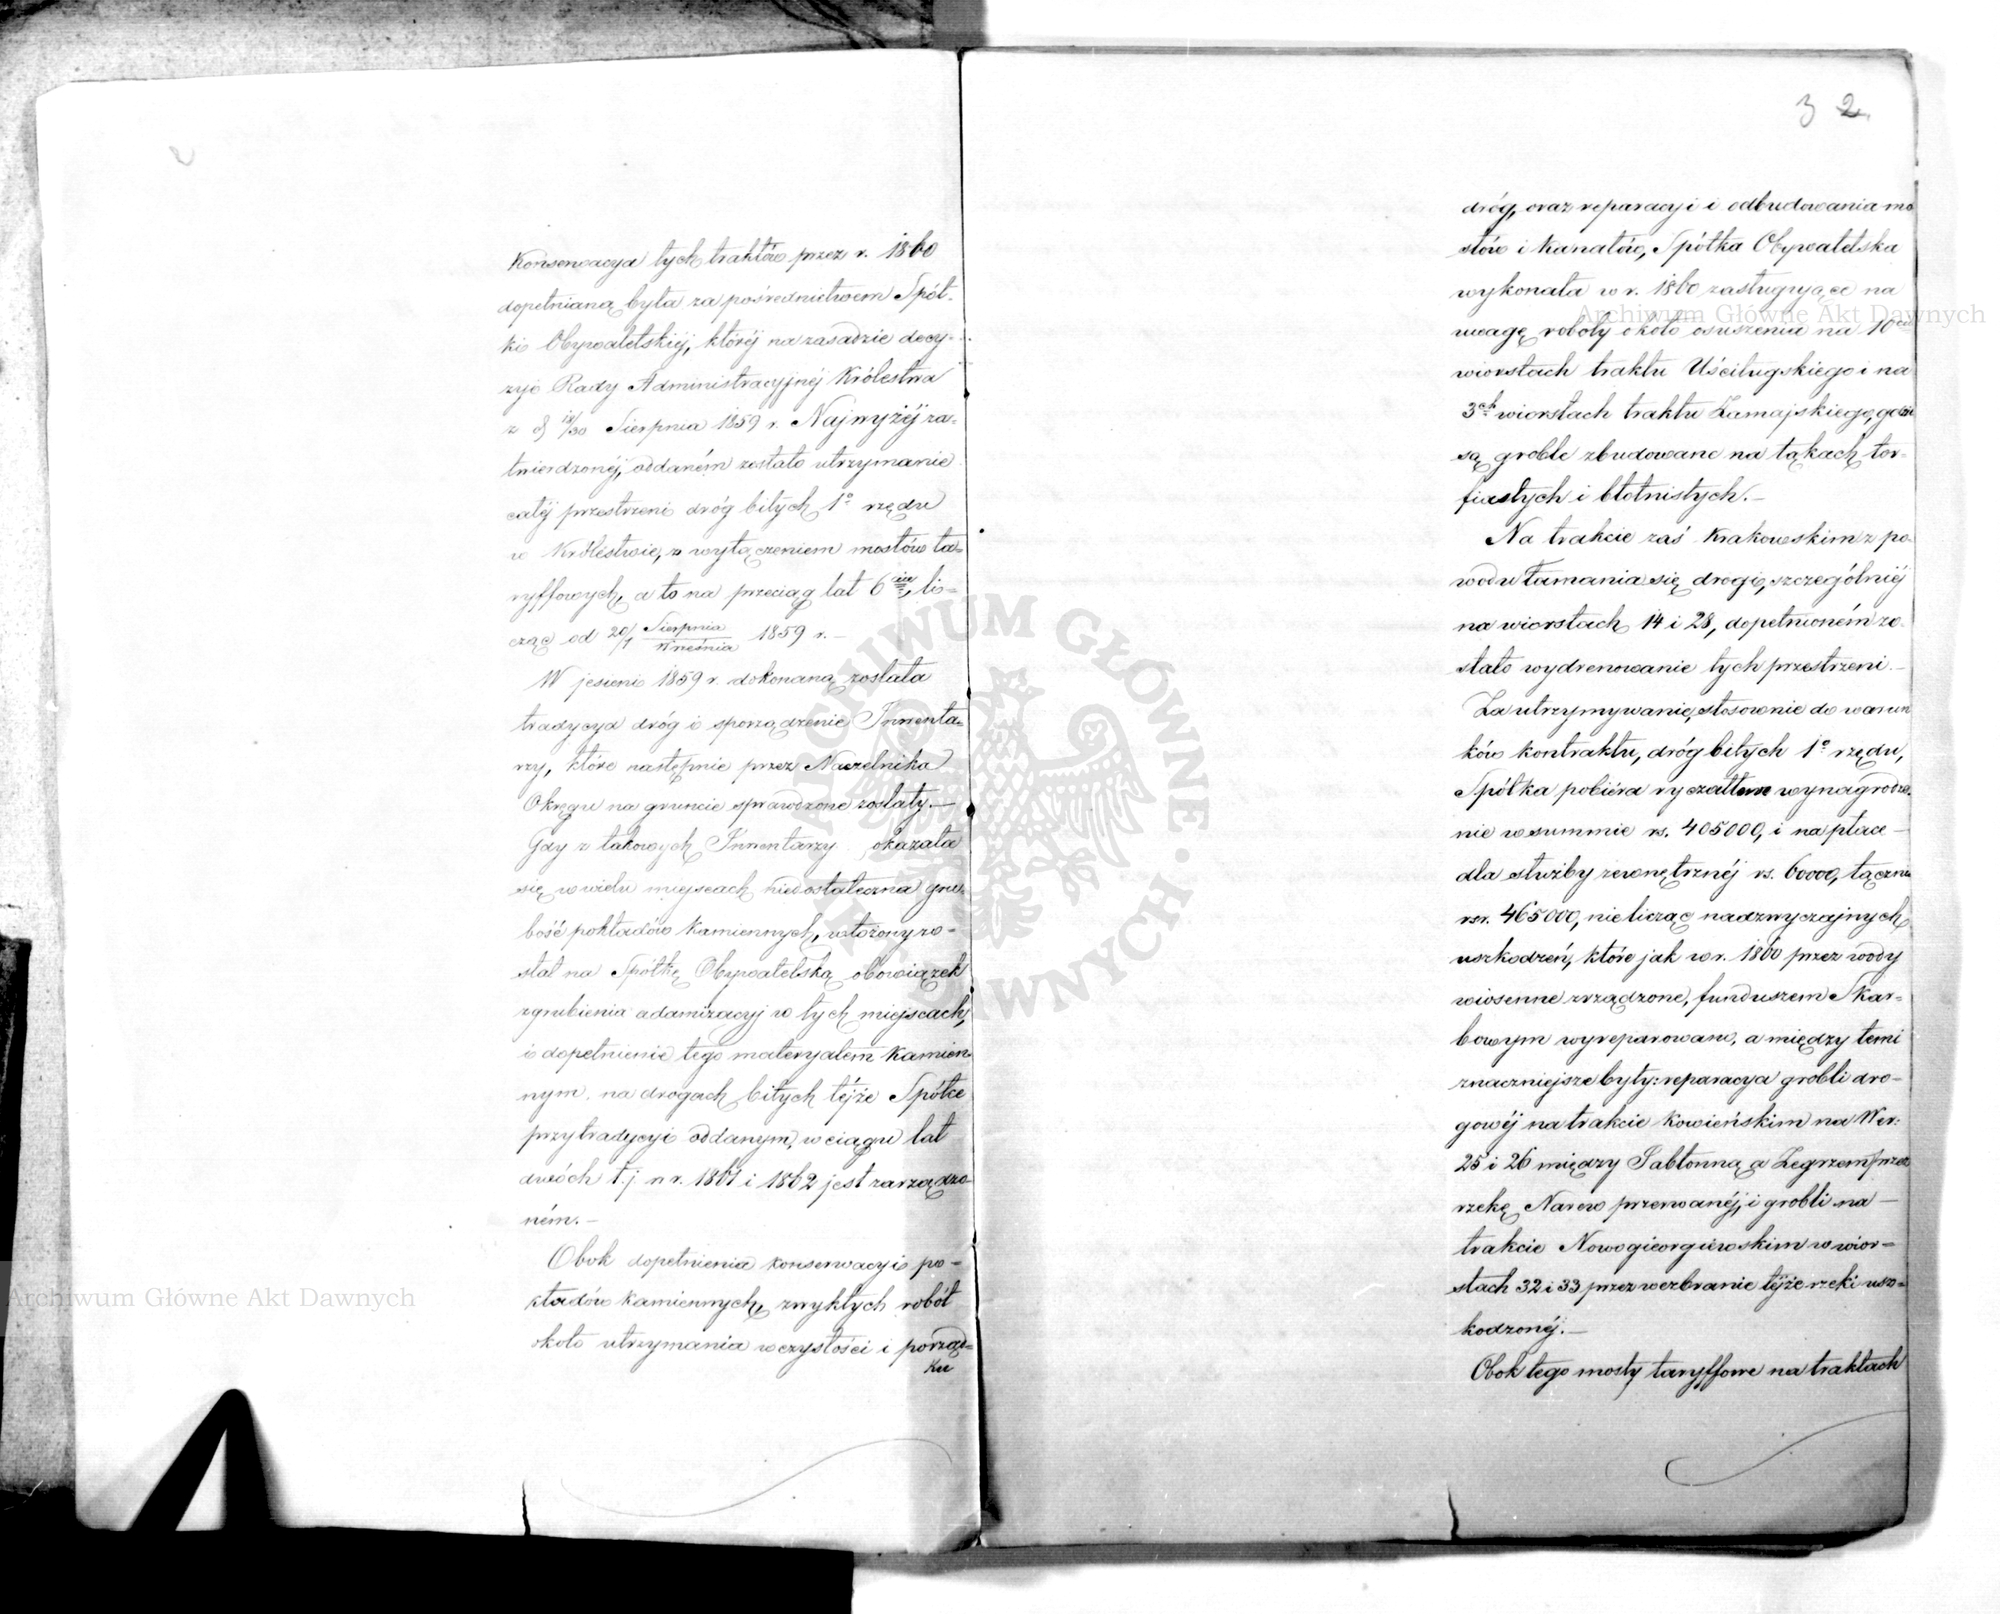 Konserwacya tych traktów przez r. 1860
dopełnianą była za pośrednictwem Spół-
ki Obywatelskiéj, któréj na zasadzie decy-
zyi Rady Administracyjnéj Królestwa
z d 18/30 Sierpnia 1859 r. Najwyżéj za-
twierdzonéj, oddaném zostało utrzymanie
całéj przestrzeni dróg bitych 1º rzędu
w Królestwie, z wyłączeniem mostów ta-
ryffowych, a to na przeciąg lat 6ciu, li-
cząc od 20/1 Sierpnia/Września 1859 r. –
W jesieni 1859 r. dokonaną została
tradycya dróg i sporządzenie Inwenta-
rzy, które następnie przez Naczelnika
Okręgu na gruncie sprawdzone zostały. –
Gdy z takowych Inwentarzy okazała
się w wielu miejscach niedostateczna gru-
bość pokładów kamiennych, włożony zo-
stał na Spółkę Obywatelską obowiązek
zgrubienia adamizacyj w tych miejscach,
i dopełnienie tego materyałem kamien-
nym, na drogach bitych téjże Spółce
przy tradycyi oddanym, w ciągu lat
dwóch t.j w r. 1861 i 1862 jest zarządzo-
ném. –
Obok dopełnienia konserwacyi po-
kładów kamiennych, zwykłych robót
około utrzymania w czystości i porząd-
ku
3 2.
dróg, oraz reparacyi i odbudowania mo
stów i kanałów, Spółka Obywatelska
wykonała w r. 1860 zasługujące na
uwagę roboty około osuszenia na 10ciu
wiorstach traktu Uściługskiego i na
3ch wiorstach traktu Zamojskiego, gdzie
są groble zbudowane na łąkach tor-
fiastych i błotnistych. –
Na trakcie zaś Krakowskim z po-
wodu łamania się drogi, szczególniéj
na wiorstach 14 i 28, dopełnioném zo-
stało wydrenowanie tych przestrzeni. –
Za utrzymywanie, stosownie do warun
ków kontraktu, dróg bitych 1º rzędu,
Spółka pobiéra ryczałtem wynagrodze-
nie w summie rs. 405000, i na płace –
dla służby zewnętrznéj rs. 60000, łącznie
rsr. 465000, nie licząc nadzwyczajnych
uszkodzeń, które jak w r. 1860 przez wody
wiosenne zrządzone, funduszem Skar-
bowym wyreparowano, a między temi
znaczniejsze były: reparacya grobli dro-
gowéj na trakcie Kowieńskim na Wer:
25 i 26 między Jabłonną a Zegrzem przez
rzekę Narew przerwanéj, i grobli na –
trakcie Nowogieorgiewskim w wior-
stach 32 i 33 przez wezbranie téjże rzeki usz-
kodzonéj. –
Obok tego mosty taryffowe na traktach
Archiwum Główne Akt Dawnych
Archiwum Główne Akt Dawnych
ARCHIWUM GŁÓWNE AKT DAWNYCH